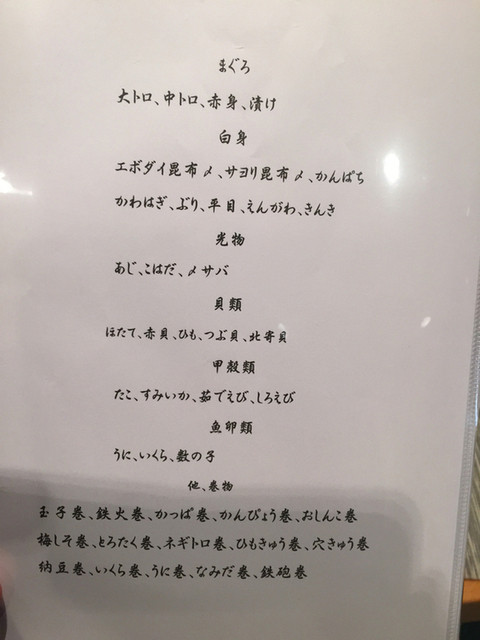 まぐろ
大トロ、中トロ、赤身、漬け
白身
エボダイ昆布〆、サヨリ昆布〆、かんぱち
かわはぎ、ぶり、平目、えんがわ、きんき
光物
あじ、こはだ、〆サバ
貝類
ほたて、赤貝、ひも、つぶ貝、北寄貝
甲殻類
たこ、すみいか、茹でえび、しろえび
魚卵類
うに、いくら、数の子
他、巻物
玉子巻、鉄火巻、かっぱ巻、かんぴょう巻、おしんこ巻
梅しそ巻、とろたく巻、ネギトロ巻、ひもきゅう巻、穴きゅう巻
納豆巻、いくら巻、うに巻、なみだ巻、鉄砲巻